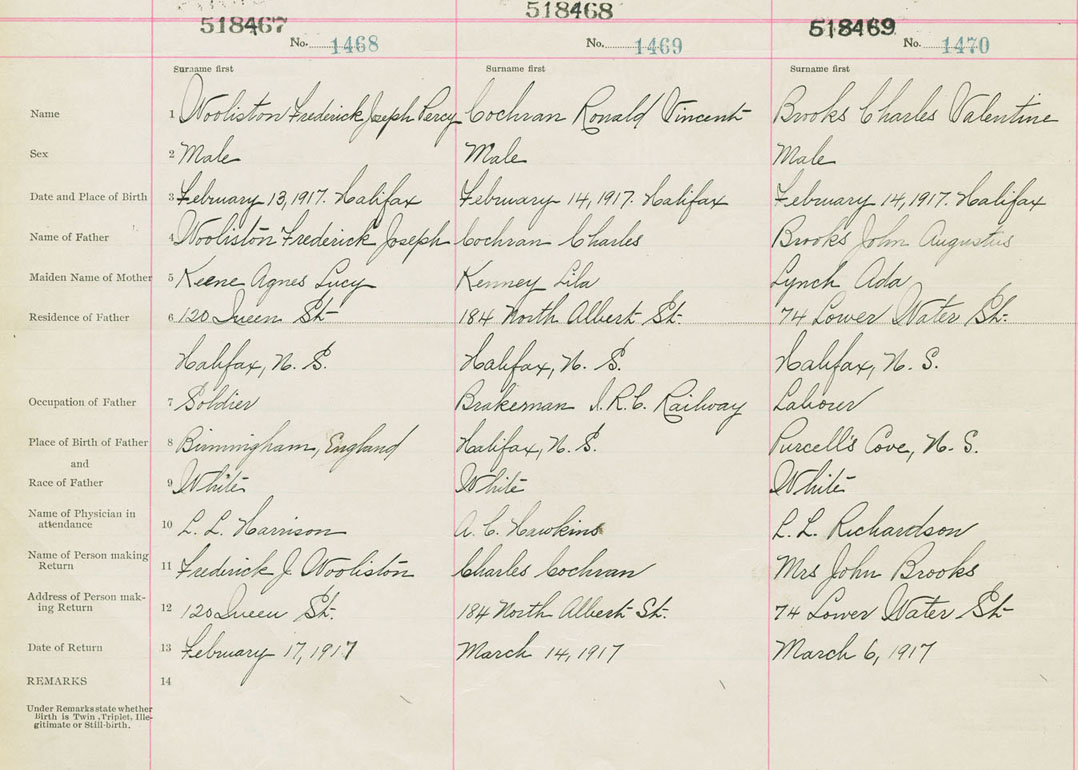 518467 518468 518469
No. 1468 No. 1469 No. 1470
Surname first Surname first Surname first
Name 1 Wooliston Frederick Joseph Percy Cochran Ronald Vincent Brooks Charles Valentine
Sex 2 Male Male Male
Date and Place of Birth 3 February 13, 1917. Halifax February 14, 1917. Halifax February 14, 1917. Halifax
Name of Father 4 Wooliston Frederick Joseph Cochran Charles Brooks John Augustus
Maiden Name of Mother 5 Keene Agnes Lucy Kenney Lila Lynch Ada
Residence of Father 6 120 Queen St. 184 North Albert St. 74 Lower Water St.
Halifax, N. S. Halifax, N. S. Halifax, N. S.
Occupation of Father 7 Soldier Brakeman I.R.C. Railway Labourer
Place of Birth of Father 8 Birmingham, England Halifax, N. S. Purcell's Cove, N. S.
and
Race of Father 9 White White White
Name of Physician in
attendance 10 L. L. Harrison A. C. Hawkins L. L. Richardson
Name of Person making
Return 11 Frederick J. Wooliston Charles Cochran Mrs John Brooks
Address of Person mak-
ing Return 12 120 Queen St. 184 North Albert St. 74 Lower Water St
Date of Return 13 February 17, 1917 March 14, 1917 March 6, 1917
REMARKS 14
Under Remarks state whether
Birth is Twin, Triplet, Ille-
gitimate or Still-birth.